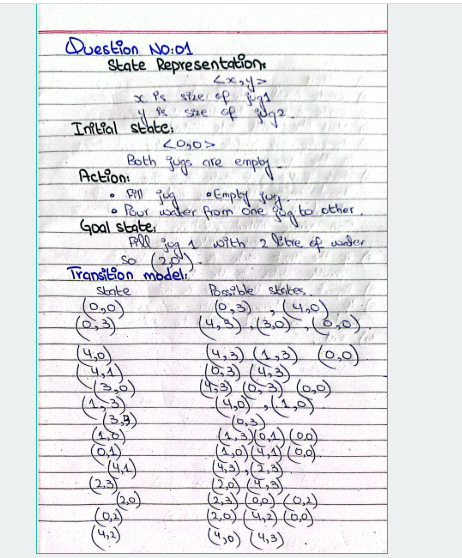 Question No:01
State Representation:
<x,y>
x is size of jug1
y is size of jug2.
Initial state:
<0,0>
Both jugs are empty.
Action:
• Fill jug • Empty jug.
• Pour water from one jug to other.
Goal state:
Fill jug 1 with 2 litre of water
so (2,0).
Transition model:
State Possible states.
(0,0) (0,3) , (4,0)
(0,3) (4,3) ,(3,0) ,(0,0)
(4,0) (4,3) (1,3) (0,0)
(4,1) (0,3) (4,3)
(3,0) (4,3) (0,3) (0,0)
(1,3) (4,0) ,(1,0)
(3,3) (0,3)
(1,0) (1,3) (0,1) (0,0)
(0,1) (1,0) (4,1) (0,0)
(4,1) (4,3) ,(2,3)
(2,3) (2,0) (4,3)
(2,0) (2,3) (0,0) (0,2)
(0,2) (2,0) (4,2) (0,0)
(4,2) (4,0) (4,3)